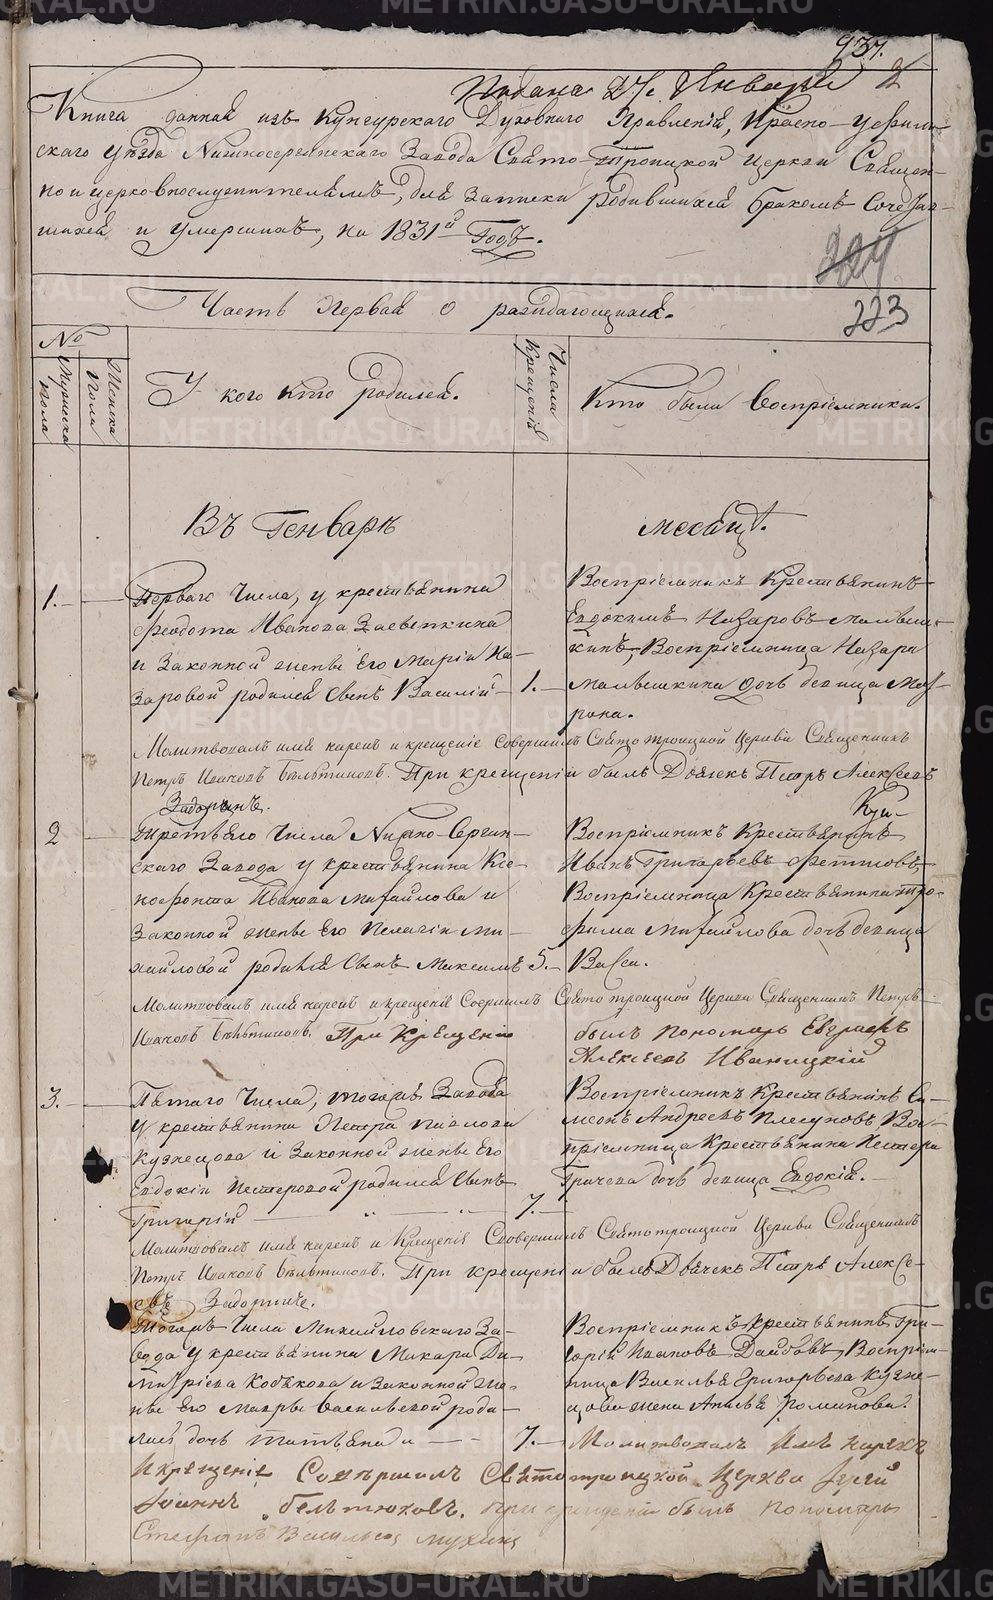 937.
Подана 27 Января 2
Книга данная изъ Кунгурскаго Духовнаго Правленія, Красно-Уфим-
скаго Уѣзда Нижносергинскаго Завода Свято-Троицкой Церкви Священ-
но и церковнослужителямъ, для записки родившихся бракомъ Сочетав-
шихся и умершихъ, на 1831й Годъ.
224
223
Часть Первая о раждающихся.
№
Мужеска пола
Женска Пола
У кого кто родился.
Числа Крещенія
Кто были Воспріемники.
Въ Генварѣ
месяцѣ.
1.
Перваго Числа, у крестьянина
Феодота Иванова Заевенкина
и Законной жены Его Маріи На-
заровой родился Сынъ Василій
1.
Воспріемникъ Крестьянинъ
Евдокимъ Назаровъ Малыш-
кинъ, Воспріемница Назара
Малышкина дочь девица Мат-
рона.
Молитвовалъ имя нарекъ и крещеніе Совершилъ Святотроицкой Церкви Священникъ
Петръ Иваковъ Бельтюковъ. При крещеніи былъ Дьячекъ Петръ Алексеевъ
Задоринъ.
2
Третьяго Числа Нижно-Сергин-
скаго Завода у крестьянина Ксе-
нофонта Иванова Михайлова и
Законной жены Его Пелагіи Ми-
хайловой родился Сынъ Максимъ
5.
Воспріемникъ Крестьянинъ
Иванъ Григорьевъ Фетисовъ,
Воспріемница Крестьянина Тро-
фима Михайлова дочь девица
Васса.
Молитвовалъ имя нарекъ и крещеніе Совершилъ Свято троицкой Церкви Священникъ Петръ
Иваковъ Бельтюковъ. При Крещеніи
былъ пономарь Евграфъ
Алексеевъ Иваницкій
3.
Пятаго Числа, тогожъ Завода
У крестьянина Петра Павлова
Кузнецова и Законной жены Его
Евдокіи Нестеровой родился Сынъ
Григорій
7.
Воспріемникъ Крестьянинъ Си-
меонъ Андреевъ Плесуновъ, Вос-
пріемница Крестьянина Нестера
Грачева дочь девица Евдокія.
Молитвовалъ имя нарекъ и Крещеніе Совершилъ Святотроицкой Церкви Священникъ
Петръ Иваковъ Бельтюковъ. При крещеніи былъ Дьячекъ Петръ Алексе-
евъ Задоринъ.
Тогожъ Числа Михайловскаго За-
вода у крестьянина Макара Ди-
митріева Кобякова и Законной Же-
ны Его Мавры Васильевой роди-
лась дочь Татьяна
7.
Воспріемникъ крестьянинъ Гри-
горій Ивановъ Воспріем-
ница Василья Григорьева Кузне-
цова жена
Молитвовалъ Имя нарекъ
И крещеніе Совершилъ Святотроицкой Церкви Іерей
Іоаннъ Бельтюковъ. при крещеніи былъ Пономарь
Стефанъ Васильевъ Мухинъ
METRIKI.GASO-URAL.RU